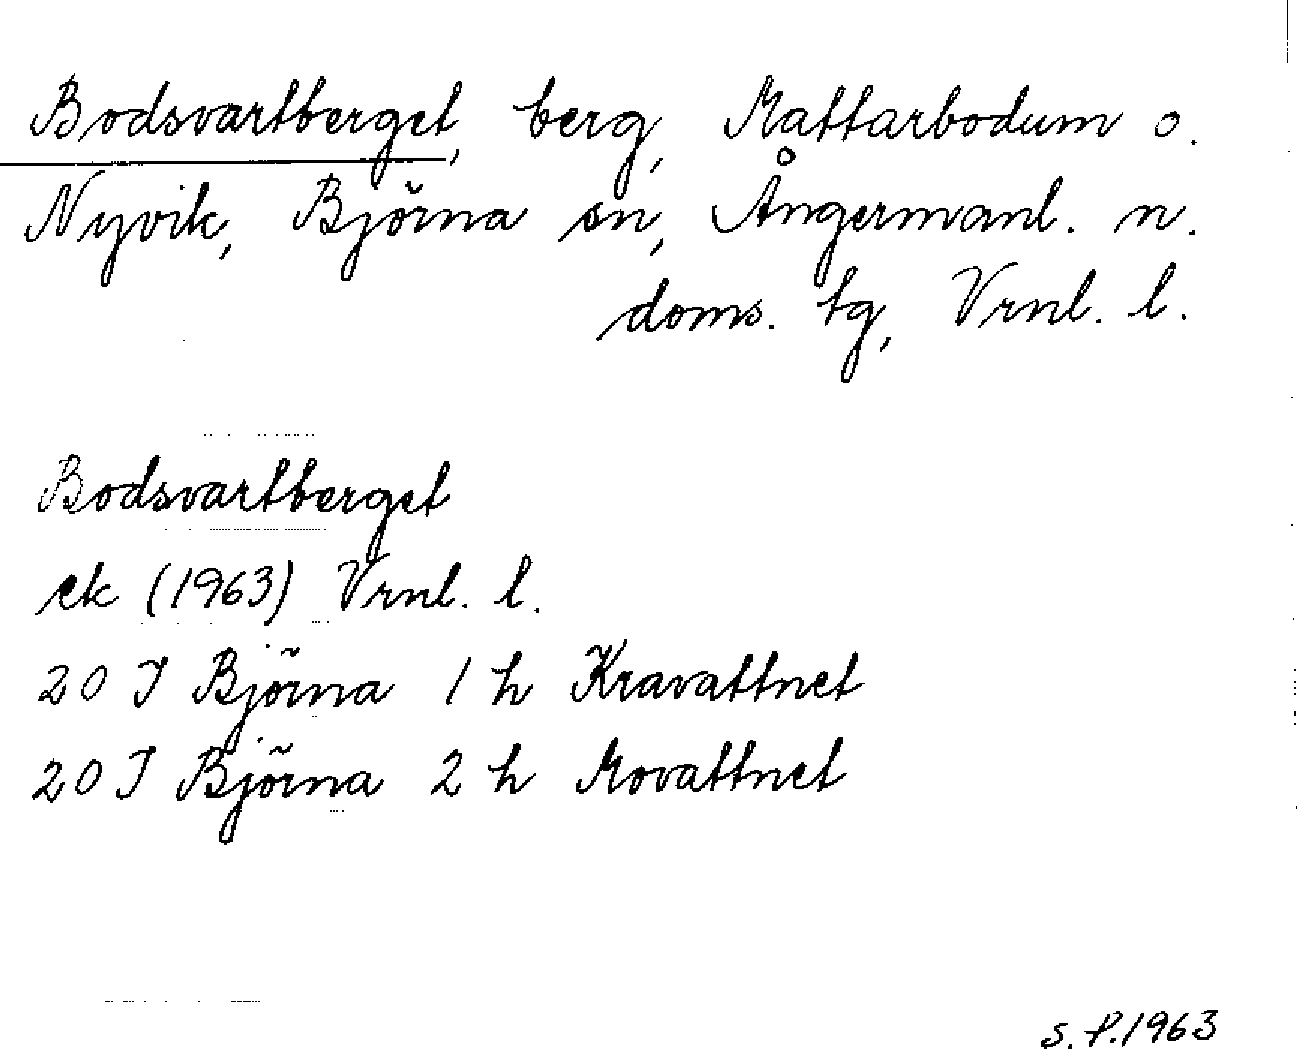 Bodsvartberget, berg, Mattarbodum o.
Nyvik, Björna sn, Ångermanl. n.
doms. tg, Vrnl. l.
Bodsvartberget
ek (1963) Vrnl. l.
20 I Björna 1 h Kravattnet
20 I Björna 2 h Movattnet
S. P. 1963